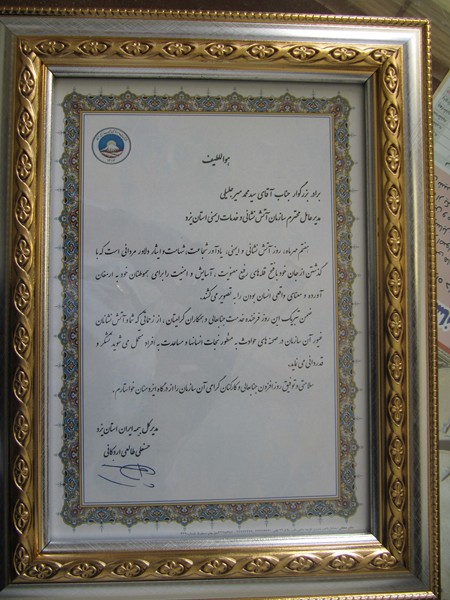 هواللطیف
برادر بزرگوار جناب آقای سید محمد میرجلیلی
مدیرعامل محترم سازمان آتش نشانی و خدمات ایمنی استان یزد
هفتم مهرماه، روز آتش نشانی و ایمنی، یادآور شجاعت، شهامت و ایثار دلاور مردانی است که با
گذشتن از جان خود با فتح قله های رفیع معنویت، آسایش و امنیت را برای هموطنان خود به ارمغان
آورده و معنای واقعی انسان بودن را به تصویر می کشند.
ضمن تبریک این روز فرخنده خدمت جنابعالی و همکاران گرامیتان، از زحماتی که شما و آتش نشانان
غیور آن سازمان در صحنه های حوادث به منظور نجات انسانها و مساعدت به افراد متحمل می شوید تشکر و
قدردانی می نماید.
سلامتی و توفیق روز افزون جنابعالی و کارکنان گرامی آن سازمان را از درگاه ایزد منان خواستارم.
مدیرکل بیمه ایران استان یزد
حسنعلی طالعی اردکانی